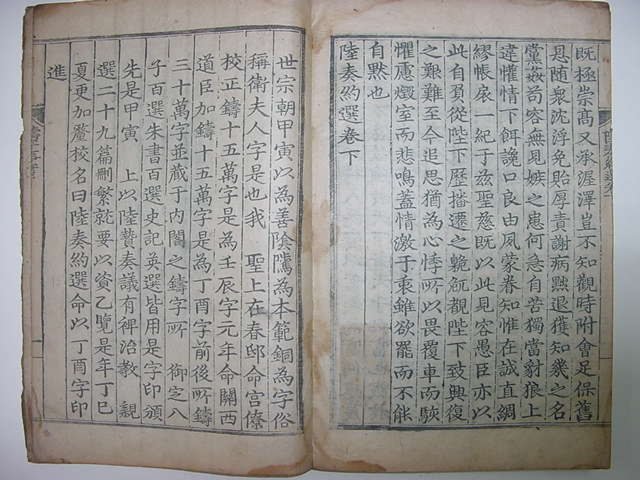 既極崇高又承渥澤豈不知觀時附會足保舊
恩随衆沈浮免貽厚責謝病黜退獲知幾之名
黨姦苟容無見嫉之患何急自苦獨當豺狼上
違懽情下餌讒口良由夙蒙眷知惟在誠直綢
繆帳扆一紀于玆聖慈既以此見容愚臣亦以
此自負從陛下歷播遷之艱危覩陛下致興復
之艱難至今追思猶為心悸所以畏覆車而駭
懼慮燬室而悲鳴蓋情激于衷雖欲罷而不能
自黙也
陸奏約選卷下
世宗朝甲寅以為善陰騭為本範銅為字俗
稱衛夫人字是也我 聖上在春邸命宮僚
校正鑄十五萬字是為壬辰字元年命關西
道臣加鑄十五萬字是為丁酉字前後所鑄
三十萬字並蔵于内閣之鑄字所 御定八
子百選朱書百選史記英選皆用是字印頒
先是甲寅 上以陸贄奏議有裨治教 親
選二十九篇刪繁就要以資乙覽是年丁巳
夏更加嚴校名曰陸奏約選命以丁酉字印
進